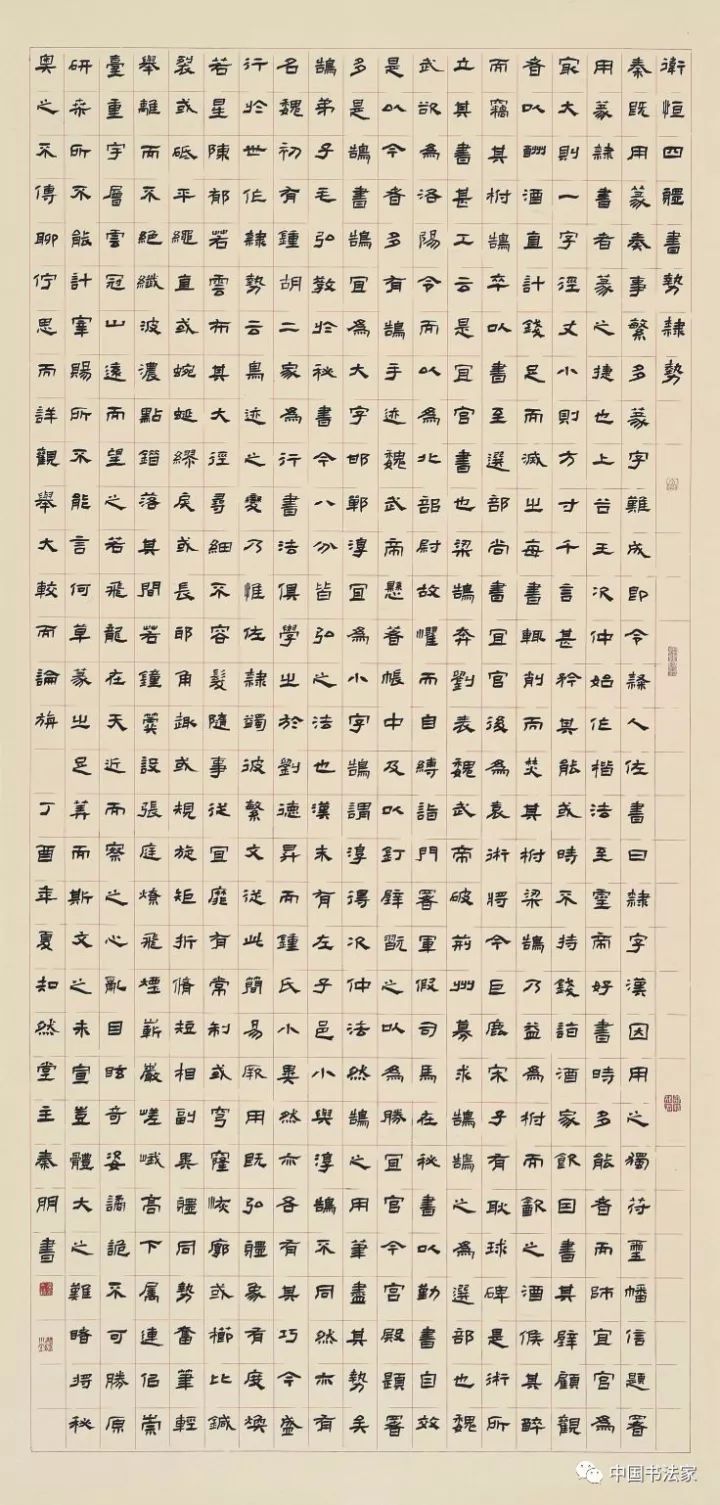 衛恒四體書勢隸勢
秦既用篆奏事繁多篆字難成即令隸人佐書曰隸字漢因用之獨符璽幡信題署
用篆隸書者篆之捷也上谷王次仲始作楷法至靈帝好書時多能者而師宜官為
最大則一字徑丈小則方寸千言甚矜其能或時不持錢詣酒家飲因書其壁顧觀
者以酬酒直計錢足而滅之每書輒削而焚其柎梁鵠乃益為柎而飲之酒候其醉
而竊其柎鵠卒以書至選部尚書宜官後為袁術將今巨鹿宋子有耿球碑是術所
立其書甚工云是宜官書也梁鵠奔劉表魏武帝破荊州募求鵠鵠之為選部也魏
武欲為洛陽令而以為北部尉故懼而自縛詣門署軍假司馬在秘書以勤書自效
是以今者多有鵠手迹魏武帝懸着帳中及以釘壁翫之以為勝宜官今宮殿題署
多是鵠書鵠宜為大字邯鄲淳宜為小字鵠謂淳得次仲法然鵠之用筆盡其勢矣
鵠弟子毛弘教於秘書今八分皆弘之法也漢末有左子邑小與淳鵠不同然亦有
名魏初有鍾胡二家為行書法俱學之於劉德昇而鍾氏小異然亦各有其巧今盛
行於世作隸勢云鳥迹之變乃惟佐隸蠲彼繁文從此簡易厥用既弘體象有度煥
若星陳郁若雲布其大徑尋細不容髮隨事從宜靡有常制或穹窿恢廓或櫛比鍼
裂或砥平繩直或蜿蜒繆戾或長邪角趣或規旋矩折脩短相副異體同勢奮筆輕
舉離而不絕纖波濃點錯落其間若鐘簴設張庭燎飛煙嶄巖嵯峨高下属連佀崇
臺重宇層雲冠山遠而望之若飛龍在天近而察之心亂目眩奇姿譎詭不可勝原
研桑所不能計宰賜所不能言何草篆之足算而斯文之未宣豈體大之難睹將秘
奧之不傳聊佇思而詳觀舉大較而論旃 丁酉年夏知然堂主秦朋書
中国书法家